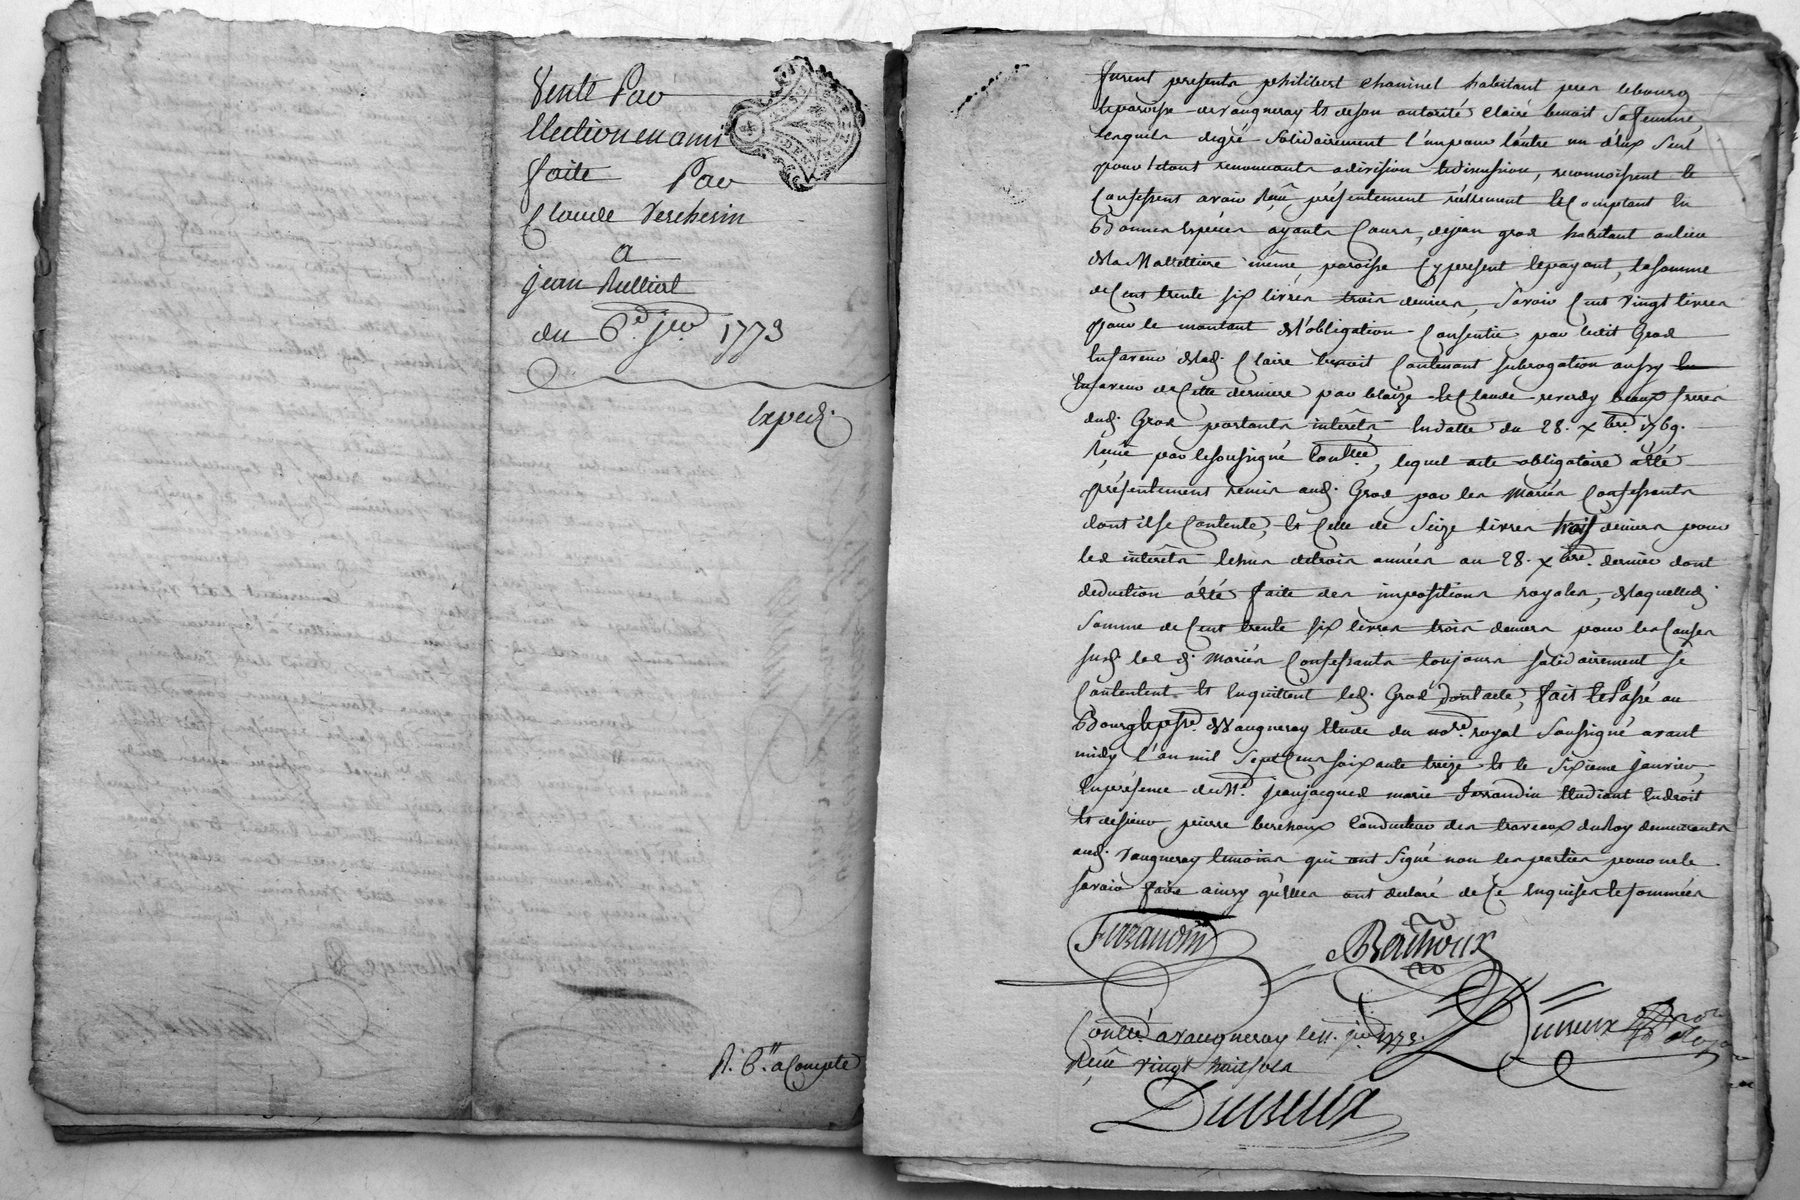 Vente Par
Election en ami
faite Par
Claude Vercherin
a
jean Rullial
du 6e. jer. 1773
Exped.
R. 6 tt acompte
furent presents philibert chaninel habitant per lebourg
leparoisse devaugneray et deson autorité claire benoit Safemme,
lesquels degré Solidairement l'un pour l'autre un d'eux Seul
pour letout renonceants adivision ediscussion, reconnoissent et
Confessent avoir Reçû présentement réellement et Comptant en
Bonnes Espèces ayants Cours, dejean gras habitant aulieu
dela Maletiere même paroisse Cy present lepayant, lasomme
deCent trente six livres trois deniers, Savoir Cent vingt livres
pour le montant del'obligation Consentie par ledit Gras
Enfaveur delad. Claire benoit Contenant subrogation aussy
Enfaveur deCette derniere par blaize et Claude reverdy beaux freres
dud. Gras portants interêts Endatte du 28. xbre. 1769.
Reçue par lesousigné Conllée, lequel acte obligatoire aété
présentement remis aud. Gras par les Mariés Confessants
dont ilse Contente, et Celle de Seize livres trois deniers pour
les interêts Echus detrois années au 28. xbre. dernier dont
deduction aété faite des impositions royales, delaquelled.
Somme de Cent trente six livres trois deniers pour les Causes
susd. les d. Mariés Confessants toujours solidairement se
Contentent et Enquittent led. Gras dontacte, fait et Passé au
Bourg et psse. de Vaugneray Etude du nore. royal Soussigné avant
midy l'an mil Sept Cens soixante treize et le Sixieme janvier,
Enpresence deMe. jeanjacques marie ferrandin Etudiant Endroit
et desieur pierre berthoux Conducteur des travaux duRoy demeurants
aud. Vaugneray temoins qui ont Signé non lesparties pournele
savoir faire ainsy qu'elles ont declaré de Ce Enquises et sommées
Ferrandin Berthoux
Dureux nore. Royal
Conllé avaugneray le 11. jer 1773.
Reçû vingt huit sols
Dureux